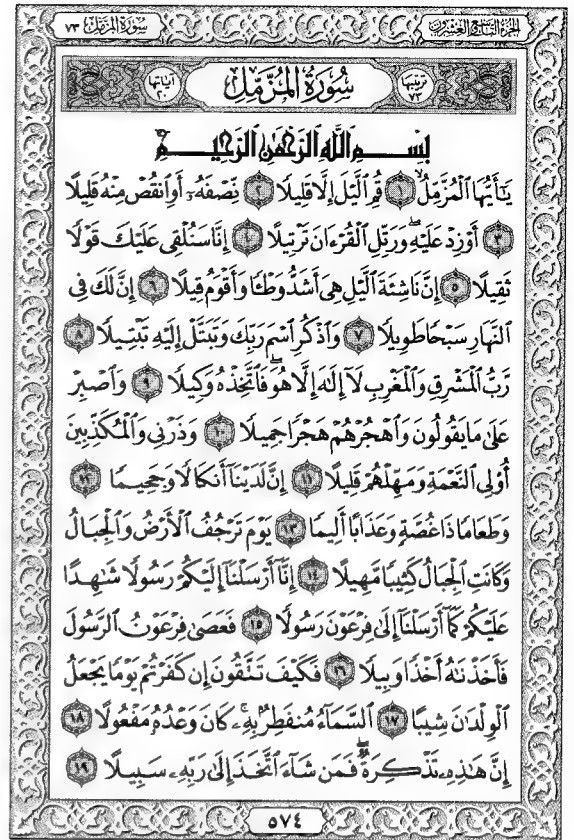 سُورَةُ المُزَّمِّلِ ٧٣
الجُزْءُ التَّاسِعُ وَالعِشْرُونَ
ترتيبها ٧٣
سُورَةُ المُزَّمِّلِ
آياتها ٢٠
بِسْمِ ٱللَّهِ ٱلرَّحْمَٰنِ ٱلرَّحِيمِ
يَٰٓأَيُّهَا ٱلْمُزَّمِّلُ ١ قُمِ ٱلَّيْلَ إِلَّا قَلِيلًا ٢ نِّصْفَهُۥٓ أَوِ ٱنقُصْ مِنْهُ قَلِيلًا
٣ أَوْ زِدْ عَلَيْهِ وَرَتِّلِ ٱلْقُرْءَانَ تَرْتِيلًا ٤ إِنَّا سَنُلْقِى عَلَيْكَ قَوْلًا
ثَقِيلًا ٥ إِنَّ نَاشِئَةَ ٱلَّيْلِ هِىَ أَشَدُّ وَطْـًٔا وَأَقْوَمُ قِيلًا ٦ إِنَّ لَكَ فِى
ٱلنَّهَارِ سَبْحًا طَوِيلًا ٧ وَٱذْكُرِ ٱسْمَ رَبِّكَ وَتَبَتَّلْ إِلَيْهِ تَبْتِيلًا ٨
رَّبُّ ٱلْمَشْرِقِ وَٱلْمَغْرِبِ لَآ إِلَٰهَ إِلَّا هُوَ فَٱتَّخِذْهُ وَكِيلًا ٩ وَٱصْبِرْ
عَلَىٰ مَا يَقُولُونَ وَٱهْجُرْهُمْ هَجْرًا جَمِيلًا ١٠ وَذَرْنِى وَٱلْمُكَذِّبِينَ
أُو۟لِى ٱلنَّعْمَةِ وَمَهِّلْهُمْ قَلِيلًا ١١ إِنَّ لَدَيْنَآ أَنكَالًا وَجَحِيمًا ١٢
وَطَعَامًا ذَا غُصَّةٍ وَعَذَابًا أَلِيمًا ١٣ يَوْمَ تَرْجُفُ ٱلْأَرْضُ وَٱلْجِبَالُ
وَكَانَتِ ٱلْجِبَالُ كَثِيبًا مَّهِيلًا ١٤ إِنَّآ أَرْسَلْنَآ إِلَيْكُمْ رَسُولًا شَٰهِدًا
عَلَيْكُمْ كَمَآ أَرْسَلْنَآ إِلَىٰ فِرْعَوْنَ رَسُولًا ١٥ فَعَصَىٰ فِرْعَوْنُ ٱلرَّسُولَ
فَأَخَذْنَٰهُ أَخْذًا وَبِيلًا ١٦ فَكَيْفَ تَتَّقُونَ إِن كَفَرْتُمْ يَوْمًا يَجْعَلُ
ٱلْوِلْدَٰنَ شِيبًا ١٧ ٱلسَّمَآءُ مُنفَطِرٌۢ بِهِۦ كَانَ وَعْدُهُۥ مَفْعُولًا ١٨
إِنَّ هَٰذِهِۦ تَذْكِرَةٌ فَمَن شَآءَ ٱتَّخَذَ إِلَىٰ رَبِّهِۦ سَبِيلًا ١٩
٥٧٤